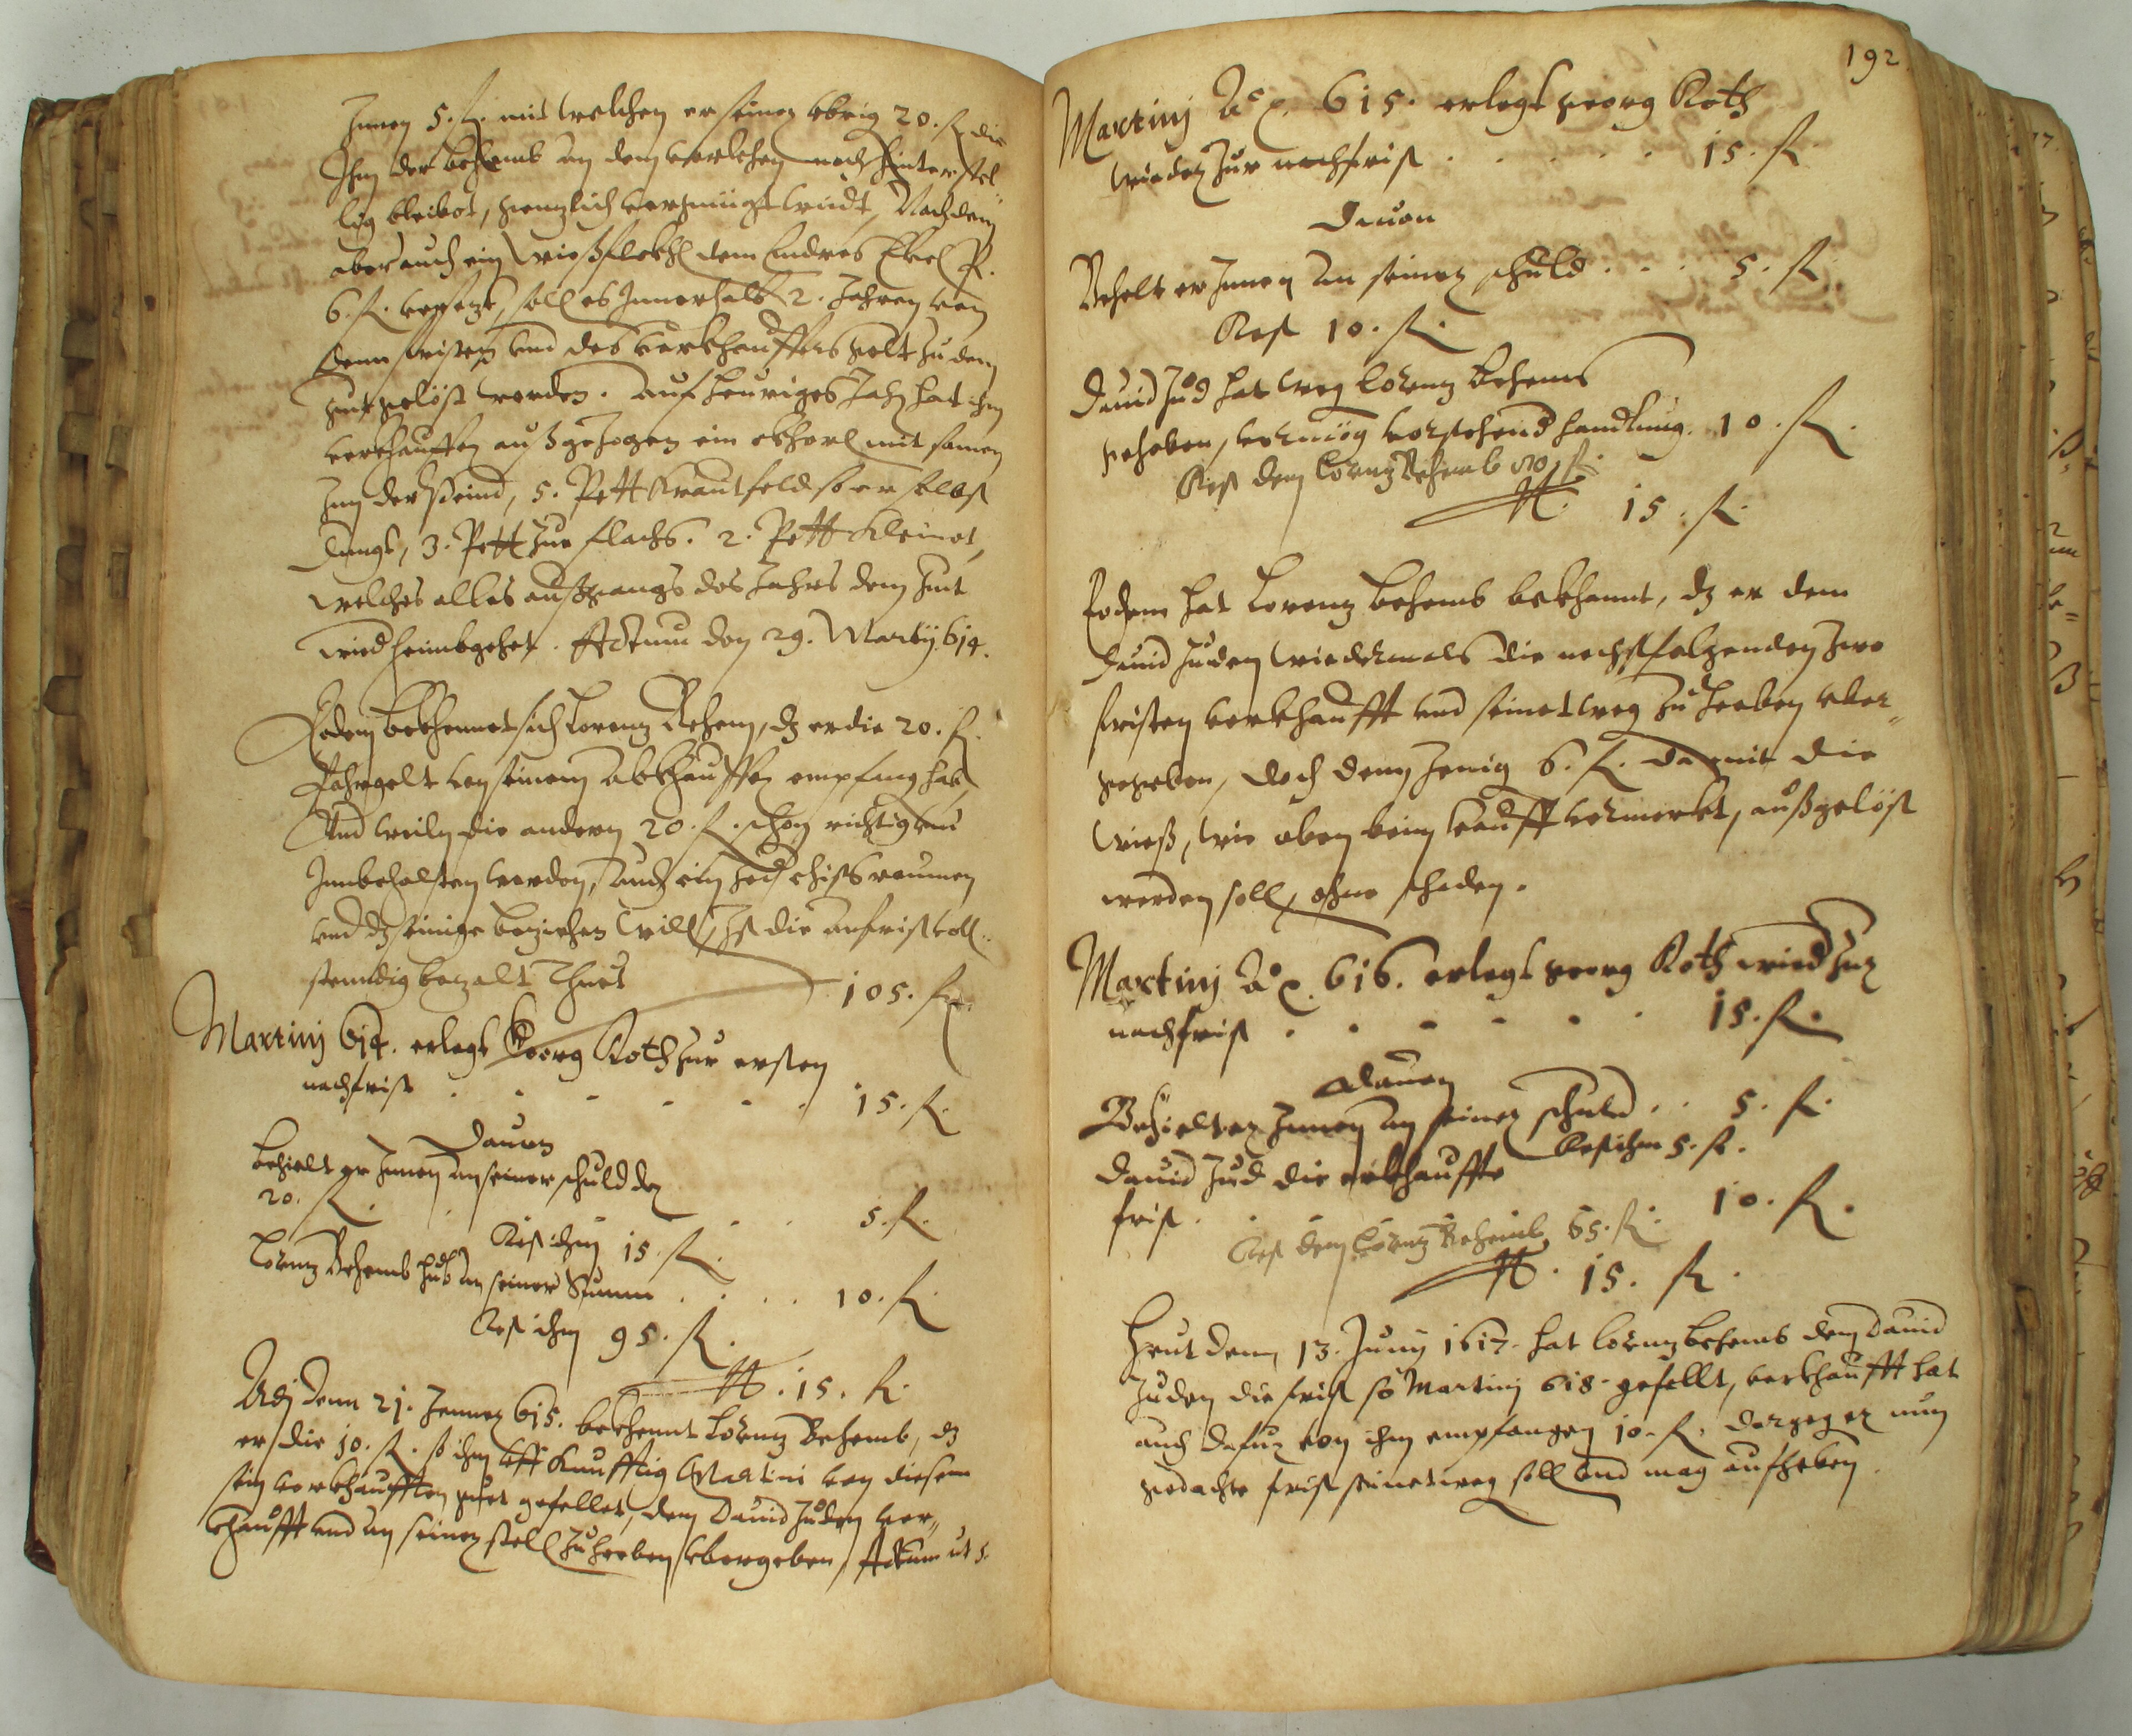 Innen 5. fl. mit welchen er seiner vbrig 20. fl. die
Ihm der Behemb an dem vorlehen noch hinterstel„
lig bleibet, gentzlich vergnügt wirdt, Nachdem
aber auch ein Wießflekhl dem Endres
6. fl. versetzt, soll es Innerhalb 2. Jahren von
denn fristen vnd des verkhauffers gelt zu dem
gut gelöst werden. Auf heuriges Jahr hat ihm
verkhauffer außgezogen ein akherl mit samen
5. Pett Krautfeld so er selbst
dungt, 3. Pett zue flachs. 2. Pett
welches alles außgangs des Jahrs dem gut
wied heimbgehet. Actum den 29. Martij 614.
Eodem bekhennet sich Lorenz Behem, dz er die 20. fl.
von seinem abkhauffer empfang hab,
Vnd weiln die andern 20. fl. schon richtig vnd
Innbehalten worden, auch ein
vnd dz seinige beziehen will, Ist die anfrist voll„
stendig bezalt Thuet 105. fl.
Martinj 614. erlegt Georg Roth zur ersten
nachfrist . . . . . . 15. fl.
Dauon
behielt er Innen an seiner schuld der
20. fl. . . . . 5. fl.
Rest ihm 15. fl.
Lorenz Behemb hub an seiner Summ . . . . 10. fl.
Rest ihm 95. fl.
15. fl.
Adj denn 21. Jenner 615. bekhennt Lorenz Behemb, dz
er die 10. fl. so ihm vff Künfftig Martini von diesem
sein verkhaufften guet gefellet, dem Dauid Juden ver„
khaufft vnd an seiner stell zu heeben vbergeben, Actum ut s.
192
Martinj Aō 615. erlegt georg Roth
wieder zur nachfrist . . . . . 15. fl.
Dauon
Behelt er Innen an seiner schuld . . . 5. fl.
Rest 10. fl.
Dauid Jud hat weg Lorenz Behems
gehoben, vermüg vorstehend handlung. 10. fl.
Rest dem Lorenz Behemb
15. fl.
Eodem hat Lorenz Behemb bekhannt, dz er dem
Dauid Juden wiedermals die nechstfolgenden zwo
fristen verkhaufft vnd seinetweg zu heeben vber„
gegeben, doch dem Jenig 6. fl. damit die
Wieß, wie oben beim kauff vermerkt, außgelöst
werden soll, ohne schaden.
Martinj Aō 616. erlegt georg Roth wied zur
nachfrist . . . . . . 15. fl.
Dauon
Behielt er Innen an seiner schuld . . 5. fl.
Rest ihm 5. fl.
Dauid Jud die erkhauffte
frist . . . 10. fl.
Rest dem Lorenz Behemb 65. fl.
15. fl.
Heut denn 13. Junij 1617. hat Lorenz Behemb dem Dauid
Juden die frist so Martinj 618. gefellt, verkhaufft hat
auch dafur von ihm empfangen 10. fl. dargeg er nun
gedachte frist seinetweg soll vnd mag aufheben.